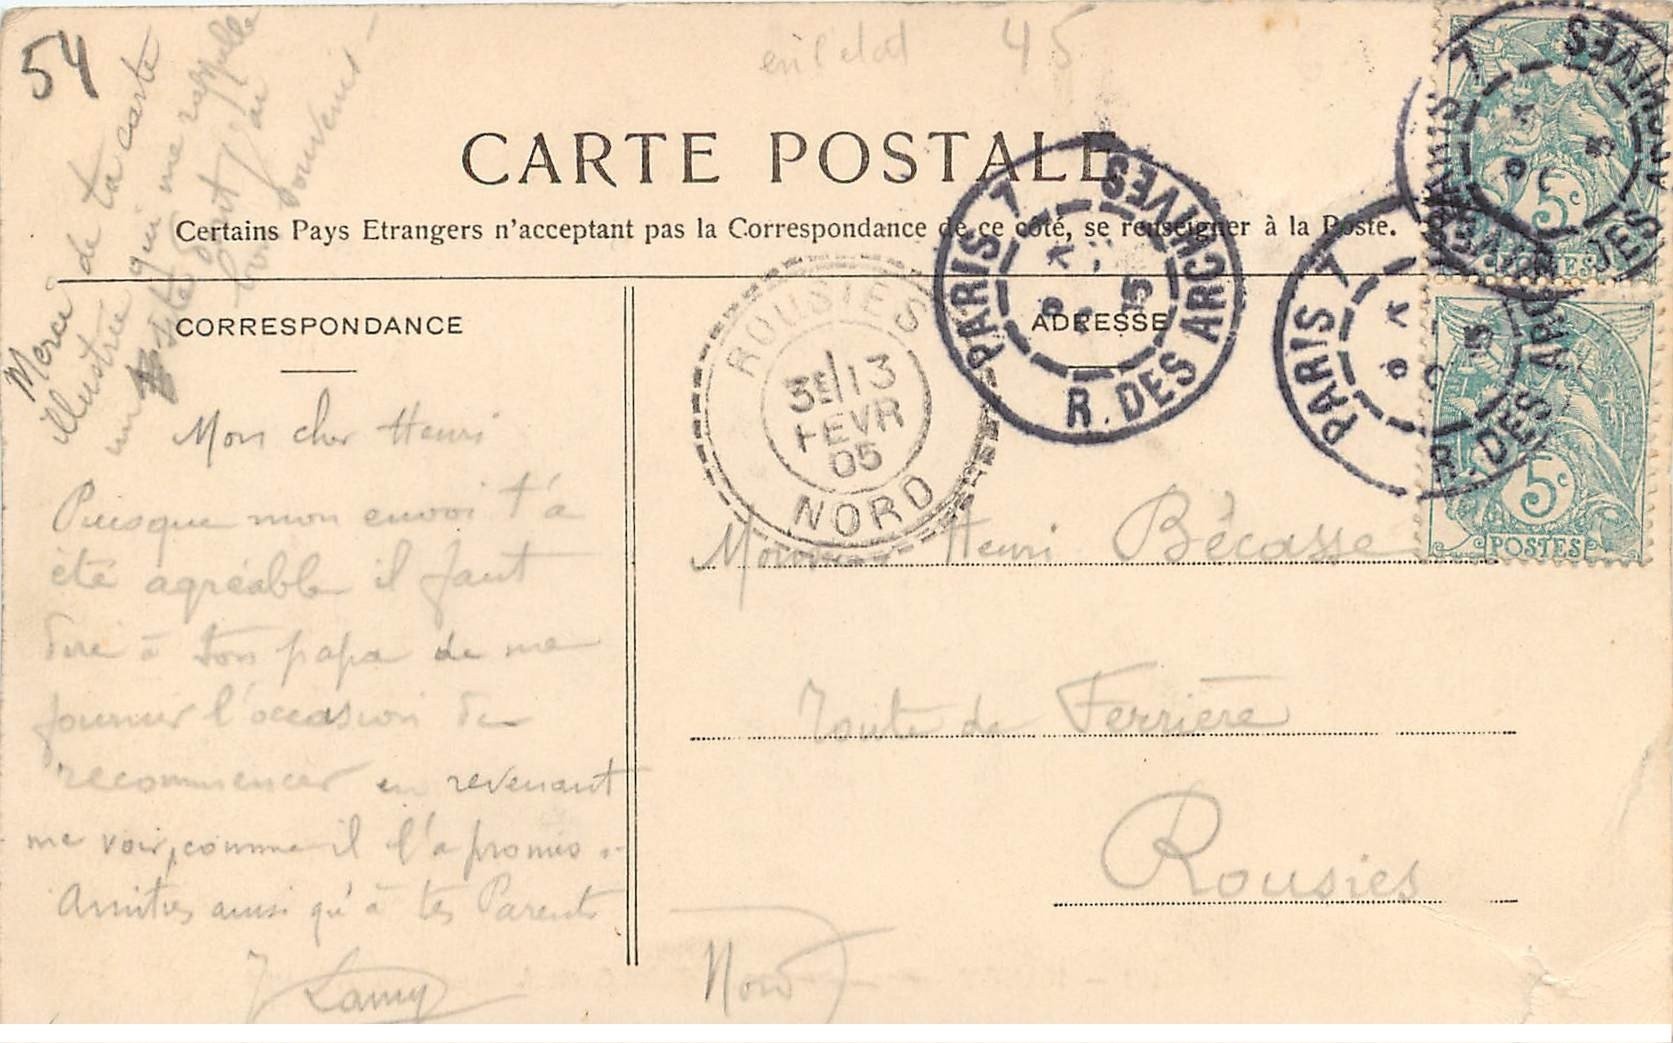 54
en l'etat 45
CARTE POSTALE
Certains Pays Etrangers n'acceptant pas la Correspondance de ce côté, se renseigner à la Poste.
CORRESPONDANCE
ADRESSE
Merci de ta carte
illustrée qui me rappelle
une dont j'ai
bon souvenir -
Mon cher Henri
Puisque mon envoi t'a
été agréable il faut
dire à ton papa de me
fournir l'occasion de
recommencer en revenant
me voir, comme il l'a promis.
Amitiés ainsi qu'à tes Parents
J. Lamy
ROUSIES
3E 13
FEVR
05
NORD
PARIS 7
R. DES ARCHIVES
PARIS 7
R. DES ARCHIVES
PARIS 7
R. DES ARCHIVES
5c
POSTES
5c
POSTES
Monsieur Henri Bécasse
Route de Ferrière
Rousies
Nord